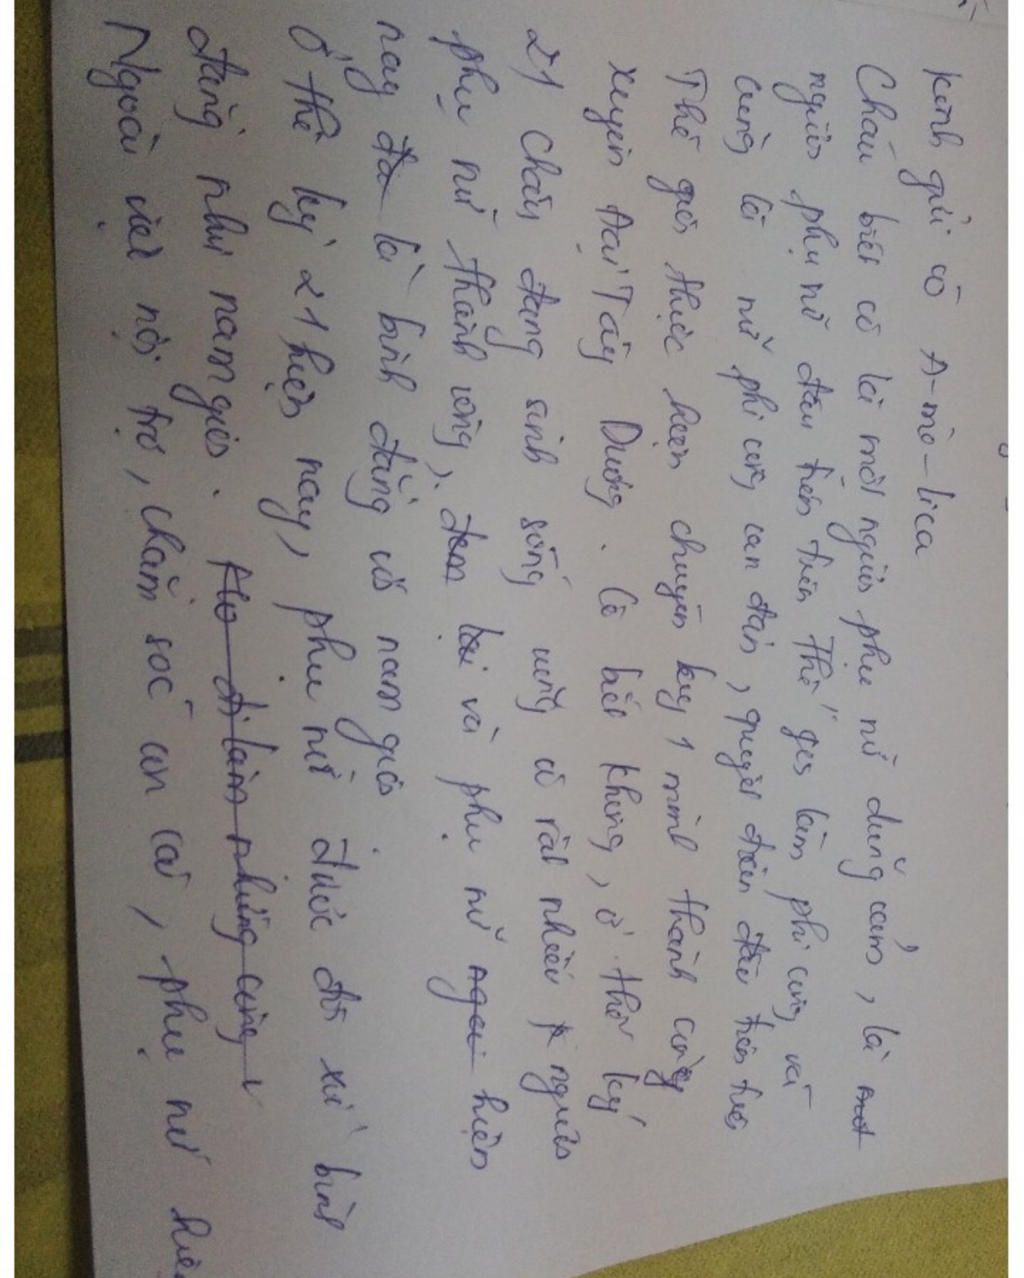 Kính gửi cô A-mê-lica
Cháu biết cô là một người phụ nữ dũng cảm, là một
người phụ nữ đầu tiên trên thế giới làm phi công và
cũng là nữ phi công can đảm, quyết đoán đầu tiên trên
Thế giới thực hiện chuyến bay 1 mình thành công
xuyên Đại Tây Dương. Cô biết không, ở thế kỷ
21 cháu đang sinh sống cũng có rất nhiều người
phụ nữ thành công, lại và phụ nữ hiện
nay đã là bình đẳng với nam giới.
Ở thế kỷ 21 hiện nay, phụ nữ được đối xử bình
đẳng như nam giới. Họ đi làm những công
Ngoài việc nội trợ, chăm sóc con cái, phụ nữ